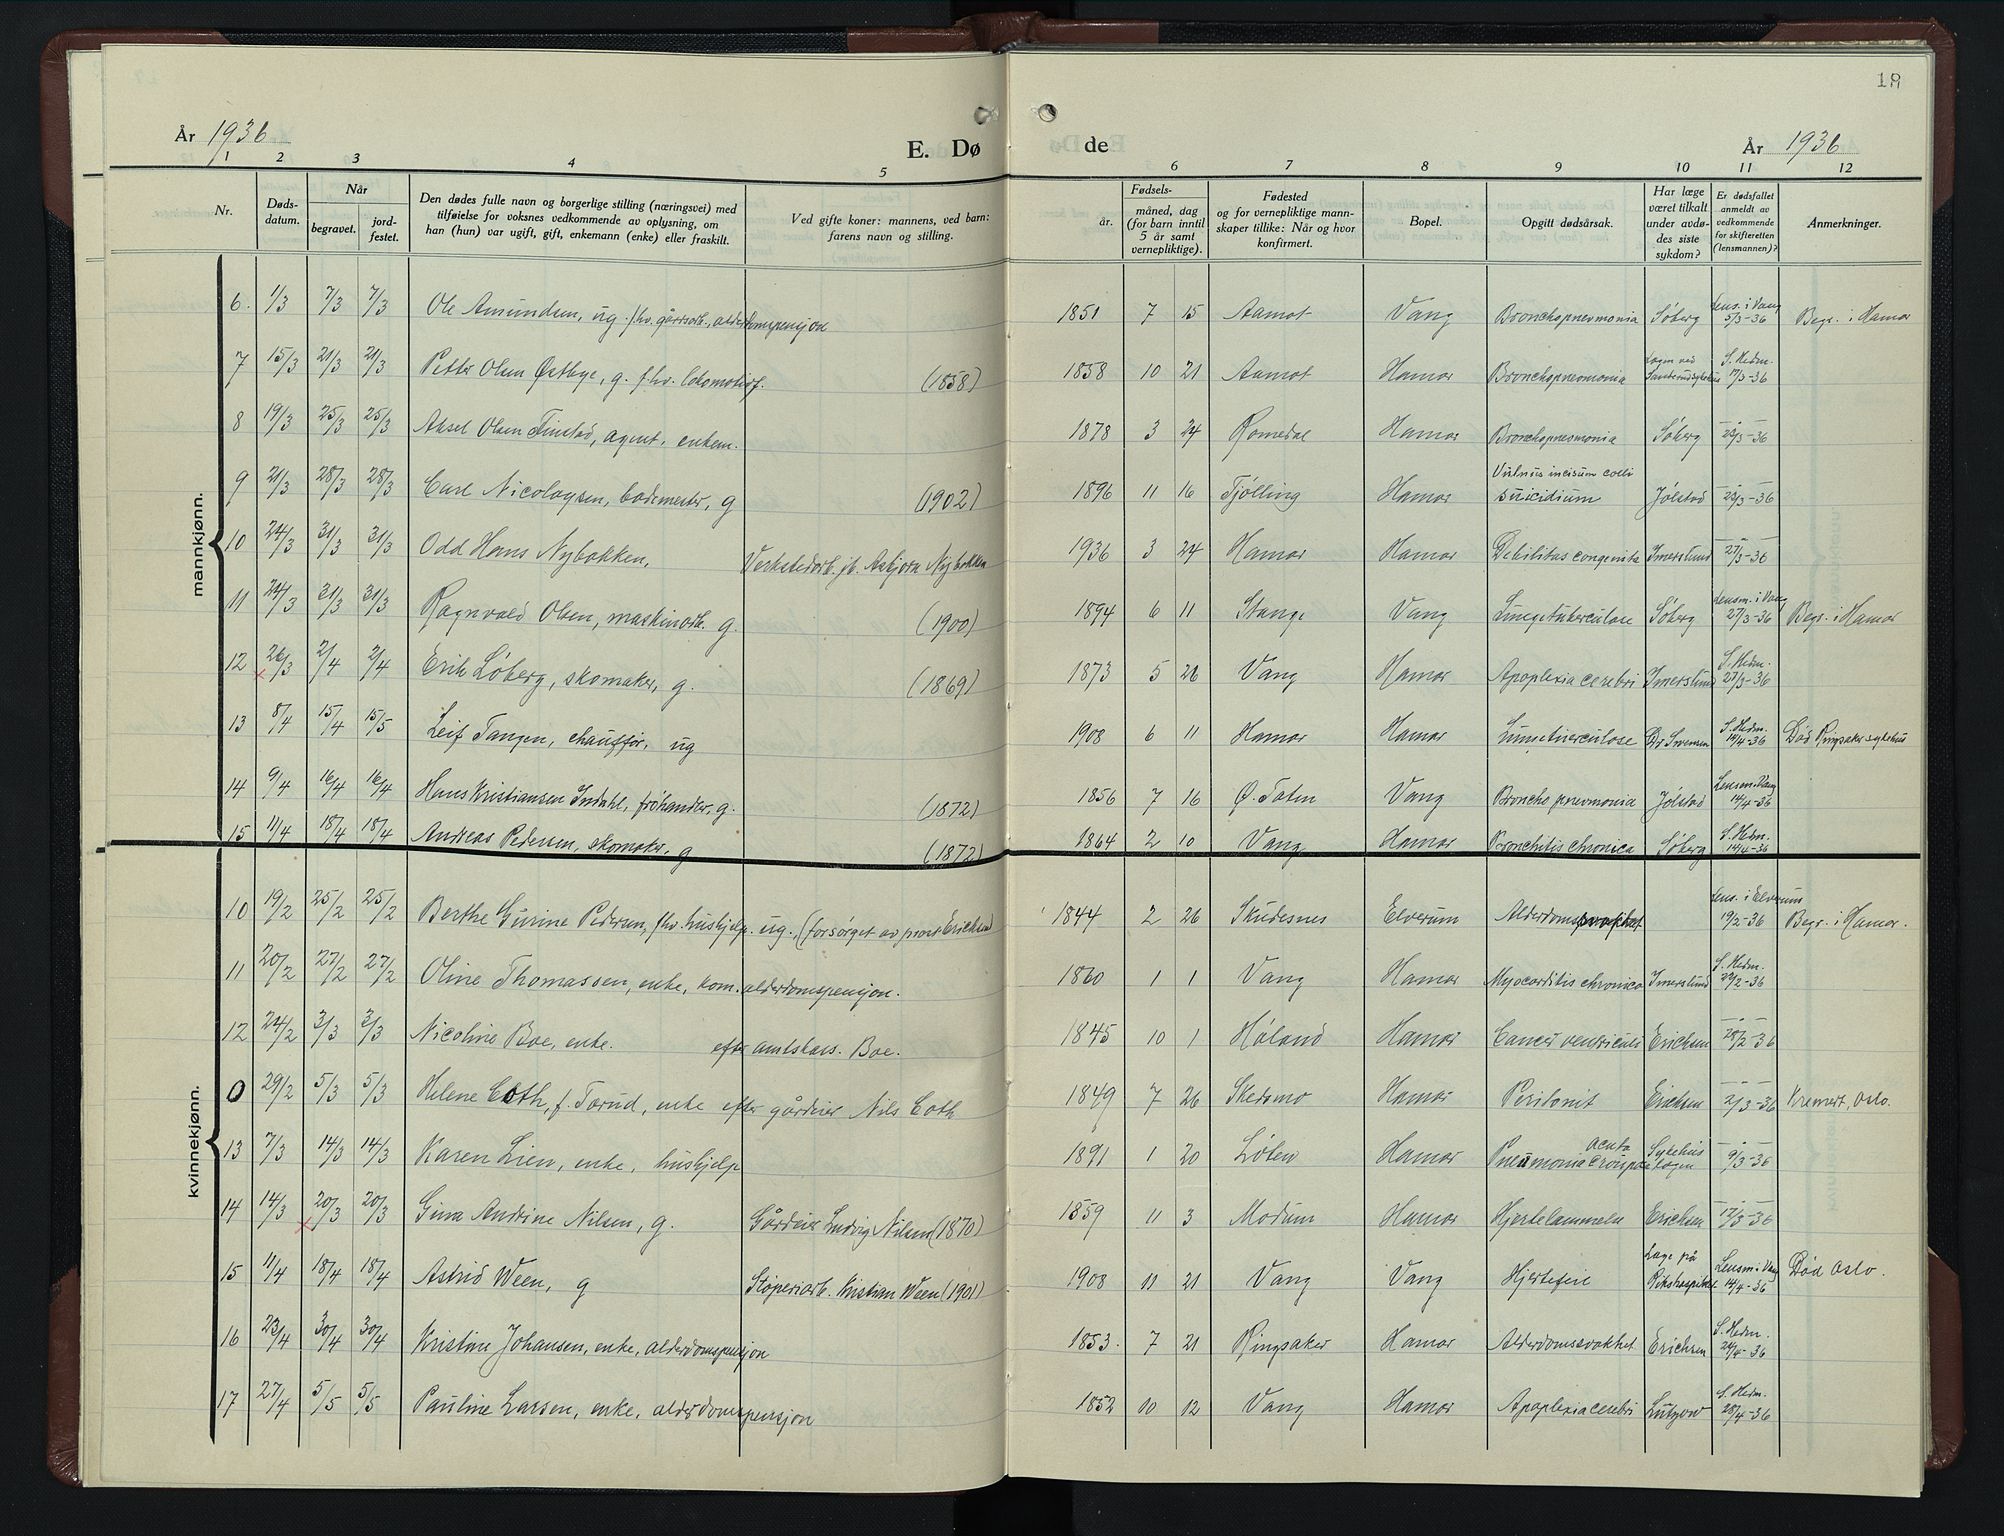 18
År 1936
E. Dø
de
År 1936
1 2 3 4 5 6 7 8 9 10 11 12
Nr.
Døds-
datum.
Når
begravet.
jord-
festet.
Den dødes fulle navn og borgerlige stilling (næringsvei) med
tilføielse for voksnes vedkommende av oplysning, om
han (hun) var ugift, gift, enkemann (enke) eller fraskilt.
Ved gifte koner: mannens, ved barn:
farens navn og stilling.
Fødsels-
år.
måned, dag
(for barn inntil
5 år samt
vernepliktige).
Fødested
og for vernepliktige mann-
skaper tillike: Når og hvor
konfirmert.
Bopel.
Opgitt dødsårsak.
Har læge
været tilkalt
under avdø-
des siste
sykdom?
Er dødsfallet
anmeldt av
vedkommende
for skifteretten
(lensmannen)?
Anmerkninger.
mannkjønn.
6. 1/3 7/3 7/3 Ole Amundsen, ug. fhv. gårdsarb., alderdomspensjon 1851 7 15 Aamot Vang Bronchopnevmonia Søberg Lens. i Vang 5/3-36 Begr. i Hamar
7 15/3 21/3 21/3 Petter Olsen Østbye, g. fhv. lokomotivf. (1858) 1858 10 21 Aamot Hamar Bronchopneomonia Lægen ved Sanderud sykehus S. Hedm. 17/3-36
8 19/3 25/3 25/3 Aksel Olsen Finstad, agent, enkem. 1878 3 24 Romedal Hamar Bronchopnevmonia Søberg 23/3-36
9 21/3 28/3 28/3 Carl Nicolaysen, bademester, g (1902) 1896 11 16 Tjølling Hamar Vulnus incisum colli suicidium Jølstad 23/3-36
10 24/3 31/3 31/3 Odd Hans Nybakken, Verkstedarb. Asbjørn Nybakken 1936 3 24 Hamar Hamar Debilitas congenita Imerslund 27/3-36
11 24/3 31/3 31/3 Ragnvald Olsen, maskinarb. g. (1900) 1894 6 11 Stange Vang Lungetuberculose Søberg Lensm. i Vang 27/3-36 Begr. i Hamar
12 26/3 2/4 2/4 Erik Løberg, skomaker, g. (1869) 1873 5 26 Vang Hamar Apoplexia cerebri Imerslund S. Hedm. 27/3-36
13 8/4 15/4 15/5 Leif Tangen, chauffør, ug 1908 6 11 Hamar Hamar Dr Svensen S. Hedm. 14/4-36 Død Ringsaker sykehus
14 9/4 16/4 16/4 Hans Kristiansen Indahl, frøhandler, g. (1872) 1856 7 16 Ø. Toten Vang Bronchopnevmonia Jølstad Lensm i Vang 14/4-36
15 11/4 18/4 18/4 Andreas Pedersen, skomaker, g (1872) 1864 2 10 Vang Hamar Bronchitis chronica Søberg S. Hedm. 14/4-36
kvinnekjønn.
10 19/2 25/2 25/2 Berthe Gurine Pedersen, fhv. hushjelp. ug., (forsørget av prost Erichsen) 1844 2 26 Skudesnes Elverum Alderdomssvakhet Lens. i Elverum 19/2-36 Begr. i Hamar.
11 20/2 27/2 27/2 Oline Thomassen, enke, kom. alderdomspensjon. 1860 1 1 Vang Hamar Myocarditis chronica Imerslund S. Hedm. 22/2-36
12 24/2 3/3 3/3 Nicoline Boe, enke. efter amtskass. Boe. 1845 10 1 Høland Hamar Cancer ventriculi Erichsen 28/2-36
0 29/2 5/3 5/3 Helene Coth, f. Tarud, enke efter gårdeier Nils Coth 1849 7 26 Skedsmo Hamar Peritonit Erichsen 2/3-36 Kremert, Oslo.
13 7/3 14/3 14/3 Karen Lien, enke, hushjelp 1891 1 20 Løten Hamar Pneumonia acuta crouposa Sykehuslægen 9/3-36
14 14/3 20/3 20/3 Gina Andrine Nilsen, g. Gårdeier Ludvig Nilsen (1870) 1859 11 3 Modum Hamar Hjertelammelse Erichsen 17/3-36
15 11/4 18/4 18/4 Astrid Ween, g Støperiarb. Kristian Ween (1901) 1908 11 21 Vang Vang Hjertefeil Læge på Rikshospitalet Lensm i Vang 14/4-36 Død Oslo.
16 23/4 30/4 30/4 Kristine Johansen, enke, alderdomspensjon 1853. 7 21 Ringsaker Hamar Alderdomssvakhet Erichsen S. Hedm. 24/4-36
17 27/4 5/5 5/5 Pauline Larsen, enke, alderdomspensjon 1852 10 12 Vang Hamar Apoplexia cerebri Lützow S. Hedm. 28/4-36